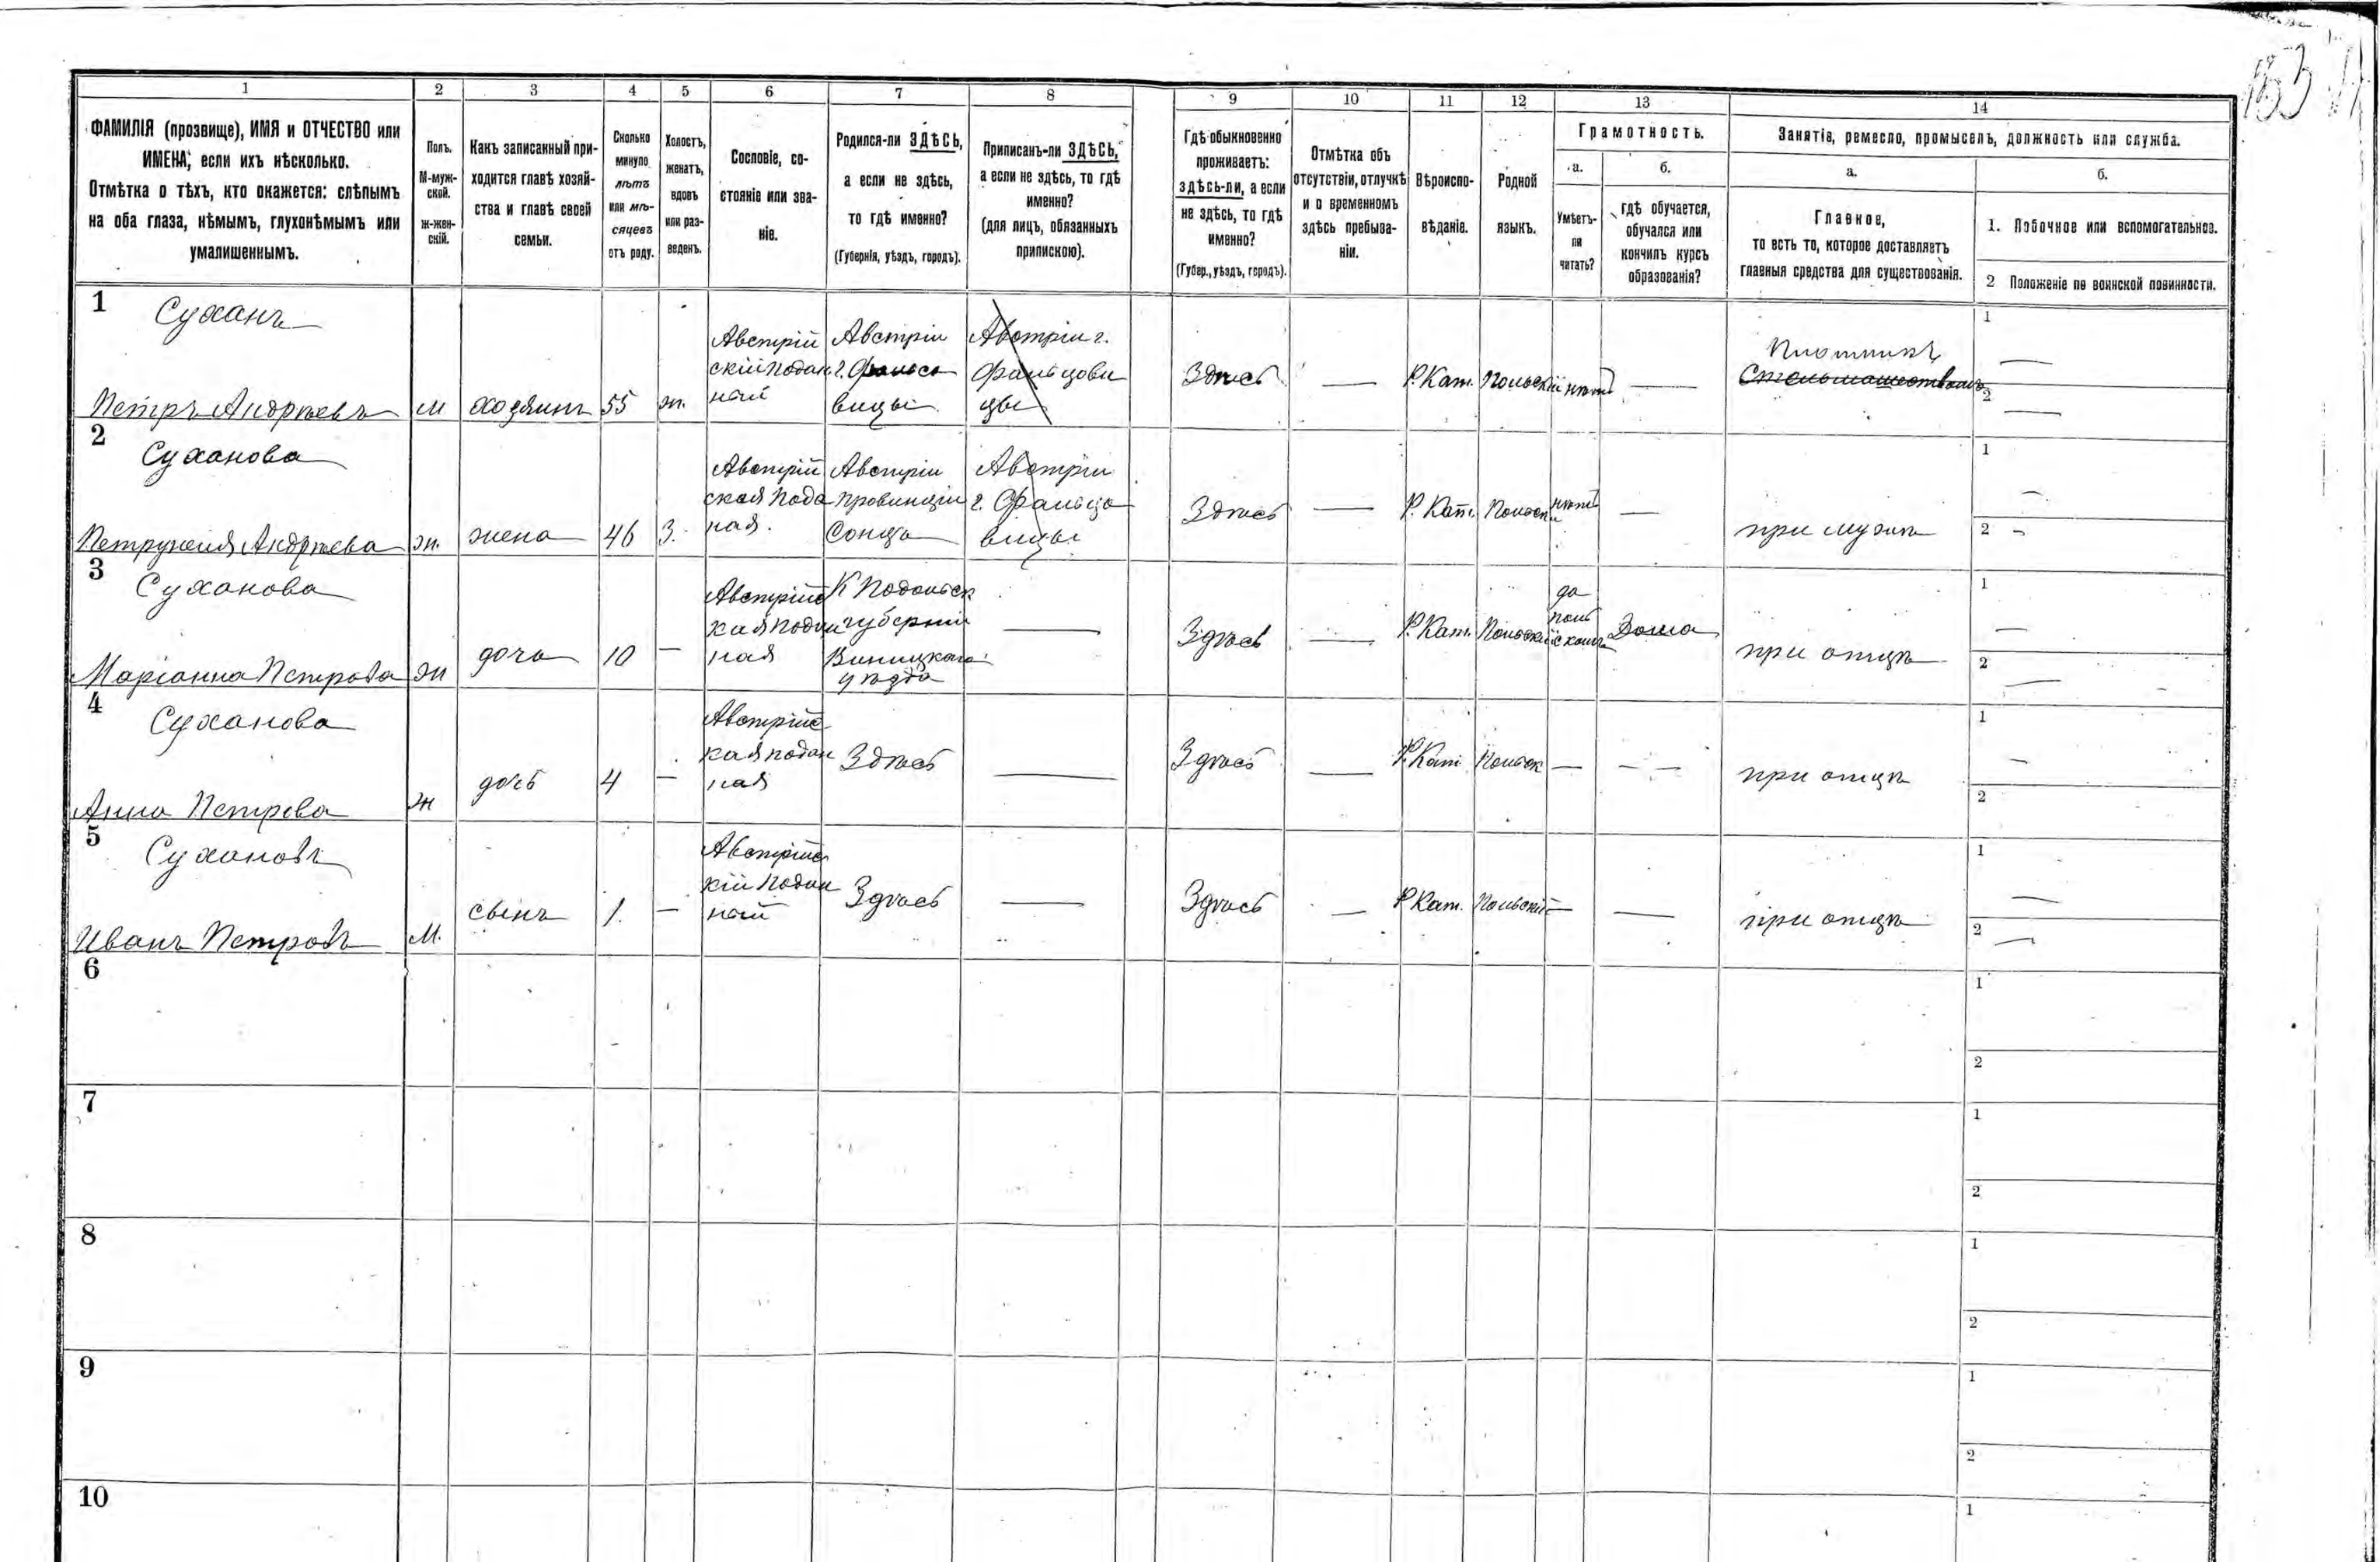 153
1 2 3 4 5 6 7 8 9 10 11 12 13 14
ФАМИЛІЯ (прозвище), ИМЯ и ОТЧЕСТВО или
ИМЕНА, если ихъ нѣсколько.
Отмѣтка о тѣхъ, кто окажется: слѣпымъ
на оба глаза, нѣмымъ, глухонѣмымъ или
умалишеннымъ.
Полъ.
М-муж-
ской.
ж-жен-
скій.
Какъ записанный при-
ходится главѣ хозяй-
ства и главѣ своей
семьи.
Сколько
минуло
лѣтъ
или мѣ-
сяцевъ
отъ роду.
Холостъ,
женатъ,
вдовъ
или раз-
веденъ.
Сословіе, со-
стояніе или зва-
ніе.
Родился-ли ЗДѢСЬ,
а если не здѣсь,
то гдѣ именно?
(Губернія, уѣздъ, городъ).
Приписанъ-ли ЗДѢСЬ,
а если не здѣсь, то гдѣ
именно?
(для лицъ, обязанныхъ
припискою).
Гдѣ обыкновенно
проживаетъ:
здѣсь-ли, а если
не здѣсь, то гдѣ
именно?
(Губер., уѣздъ, городъ).
Отмѣтка объ
отсутствіи, отлучкѣ
и о временномъ
здѣсь пребыва-
ніи.
Вѣроиспо-
вѣданіе.
Родной
языкъ.
Грамотность.
а.
Умѣетъ-
ли
читать?
б.
гдѣ обучается,
обучался или
кончилъ курсъ
образованія?
Занятіе, ремесло, промыселъ, должность или служба.
а.
Главное,
то есть то, которое доставляетъ
главныя средства для существованія.
б.
1. Побочное или вспомогательное.
2 Положеніе по воинской повинности.
1
Суханъ
Петръ Андреевъ
м
хозяинъ
55
ж.
Австрій
скій подан
ный
Австріи
г. Фальцо
вицы
Австріи г.
Фальцови
цы
Здѣсь
—
Р. Кат.
Польскій
нѣтъ
—
Плотникъ
Стельмашествомъ
1 —
2 —
2
Суханова
Петрунеля Андреева
ж.
жена
46
З.
Австрій
ская пода
ная.
Австріи
провинціи
Сонца
Австріи
г. Фальцо
вицы
Здѣсь
—
Р. Кат.
Польск
нѣтъ
—
при мужѣ
1 —
2 —
3
Суханова
Маріанна Петрова
ж
дочь
10
—
Австрійс
кая подан
ная
К Подольск
губерніи
Виницкаго
уѣзда
—
Здѣсь
—
Р. Кат.
Польскій
да
поль
скомъ
Дома
при отцѣ
1 —
2 —
4
Суханова
Анна Петрова
ж
дочь
4
—
Австрійс
кая подан
ная
Здѣсь
—
Здѣсь
—
Р. Кат
Польск
—
— —
при отцѣ
1 —
2
5
Сухановъ
Иванъ Петровъ
М.
сынъ
1.
—
Австрійс
кій подан
ный
Здѣсь
—
Здѣсь
—
Р Кат.
Польскій
—
—
при отцѣ
1 —
2 —
6
1
2
7
1
2
8
1
2
9
1
2
10
1